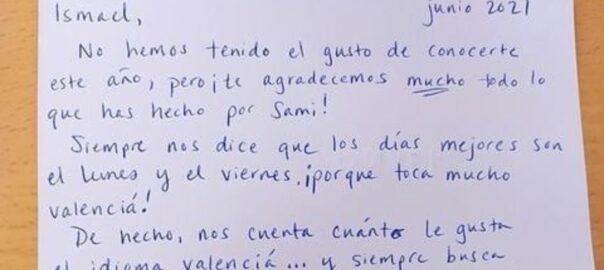 Ismael,
junio 2021
No hemos tenido el gusto de conocerte
este año, pero ¡te agradecemos mucho todo lo
que has hecho por Sami!
Siempre nos dice que los días mejores son
el lunes y el viernes, ¡porque toca mucho
valenciá!
De hecho, nos cuenta cuánto le gusta
el idioma valenciá... y siempre busca